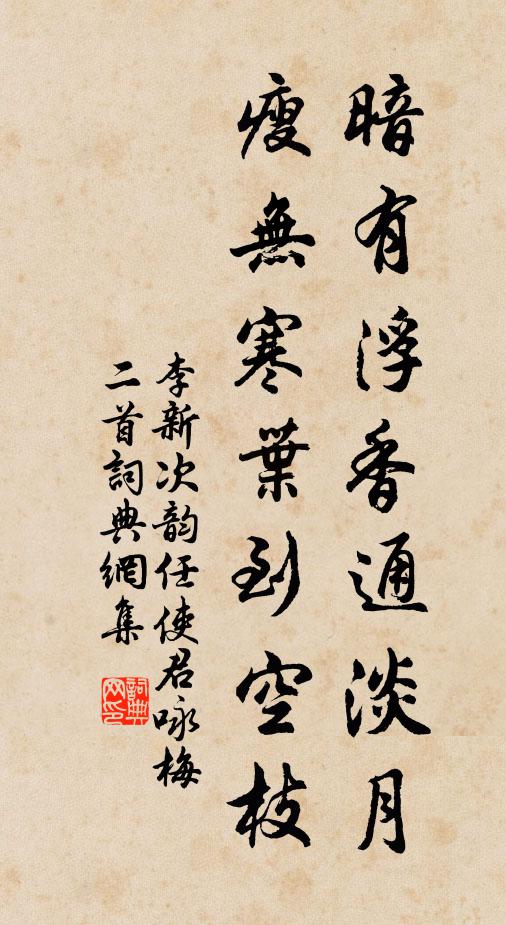 暗有浮香通淡月
瘦無寒葉到空枝
李新次韵任使君咏梅
二首詞典網集
詞典
网印